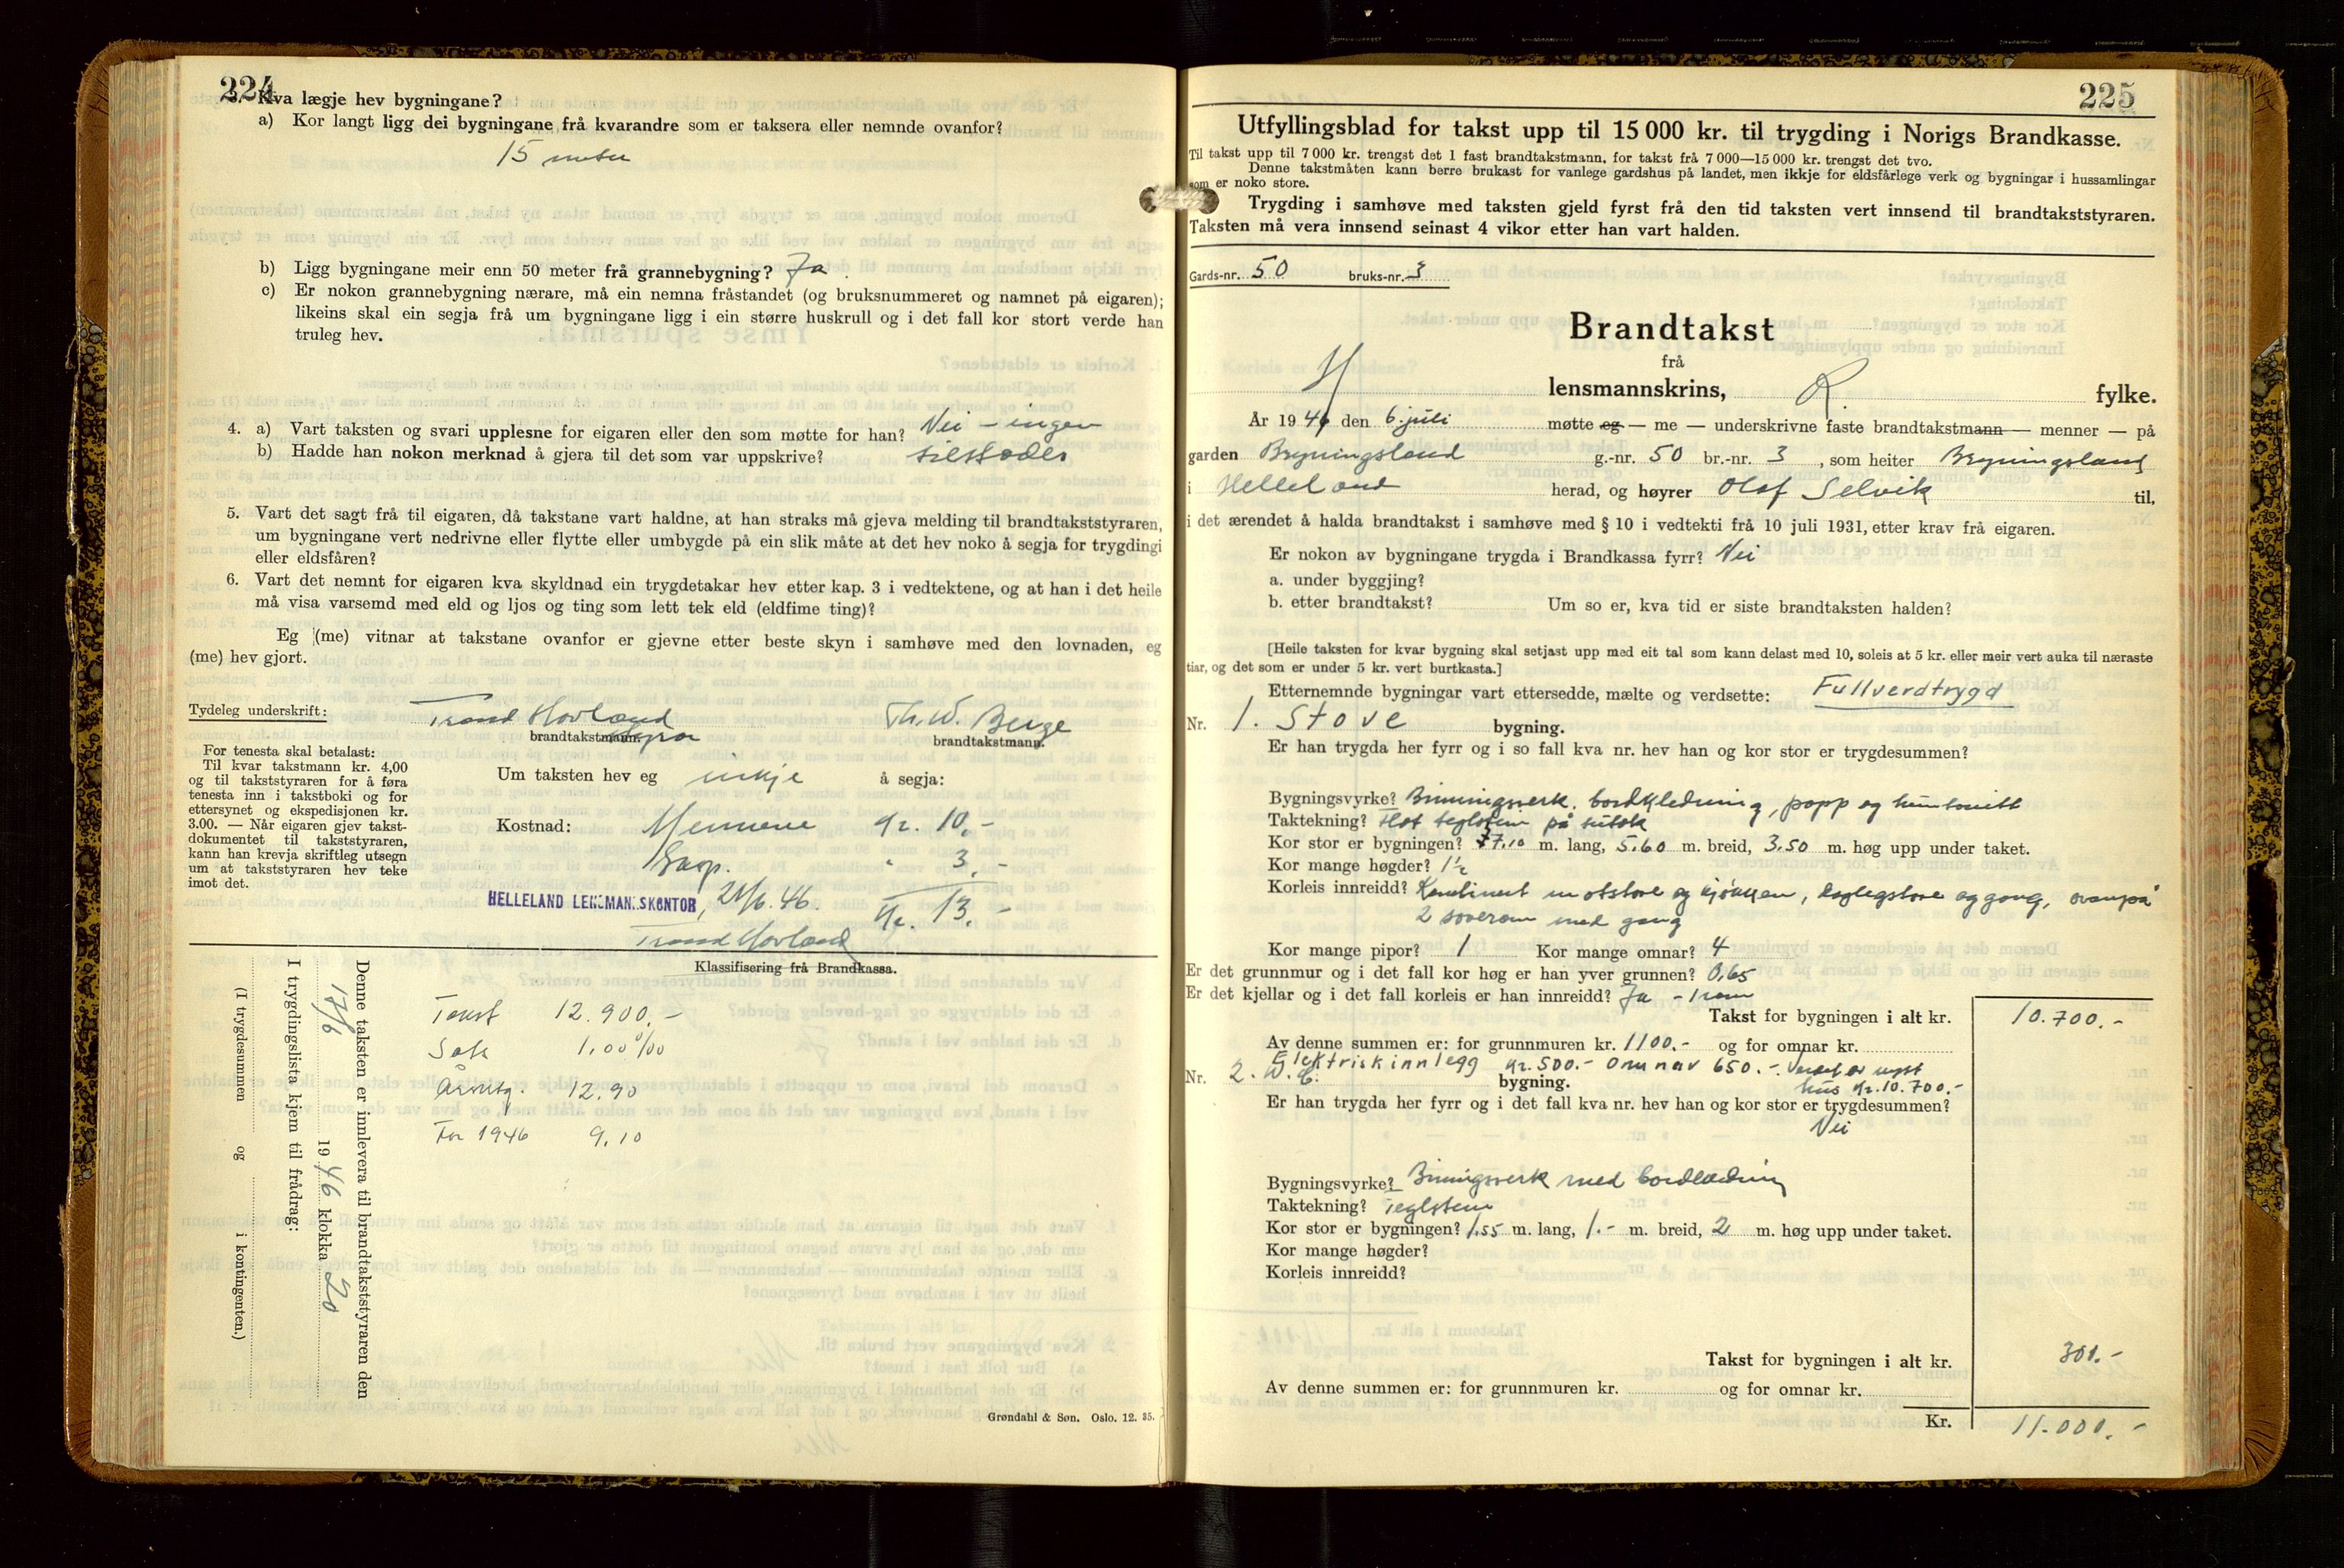 224
3. Kva lægje hev bygningane?
a) Kor langt ligg dei bygningane frå kvarandre som er taksera eller nemnde ovanfor?
15 meter
b) Ligg bygningane meir enn 50 meter frå grannebygning? Ja
c) Er nokon grannebygning nærare, må ein nemna fråstandet (og bruksnummeret og namnet på eigaren);
likeins skal ein segja frå um bygningane ligg i ein større huskrull og i det fall kor stort verde han
truleg hev.
4. a) Vart taksten og svari upplesne for eigaren eller den som møtte for han? Nei - ingen
b) Hadde han nokon merknad å gjera til det som var uppskrive? tilstades
5. Vart det sagt frå til eigaren, då takstane vart haldne, at han straks må gjeva melding til brandtakststyraren,
um bygningane vert nedrivne eller flytte eller umbygde på ein slik måte at det hev noko å segja for trygdingi
eller eldsfåren?
6. Vart det nemnt for eigaren kva skyldnad ein trygdetakar hev etter kap. 3 i vedtektene, og at han i det heile
må visa varsemd med eld og ljos og ting som lett tek eld (eldfime ting)?
Eg (me) vitnar at takstane ovanfor er gjevne etter beste skyn i samhøve med den lovnaden, eg
(me) hev gjort.
Tydeleg underskrift: Trond Hovland Th. W. Berge
brandtakstmann. brandtakstmann.
For tenesta skal betalast:
Til kvar takstmann kr. 4,00
og til takststyraren for å føra
tenesta inn i takstboki og for
ettersynet og ekspedisjonen kr.
3.00. — Når eigaren gjev takst-
dokumentet til takststyraren,
kann han krevja skriftleg utsegn
um at takststyraren hev teke
imot det.
Um taksten hev eg inkje å segja:
Kostnad: Mennene kr. 10.-
" 3.-
HELLELAND LENSMANNSKONTOR, 21/6.46. Kr. 13.-
Trond Hovland
Klassifisering frå Brandkassa.
Takst 12.900.-
Sats 1.00 ‰
12.90
For 1946 9.10
Denne taksten er innlevera til brandtakststyraren den
17/6 1946 klokka 20
I trygdingslista kjem til frådrag:
(I trygdesummen og i kontingenten.)
Grøndahl & Søn. Oslo. 12. 35.
225
Utfyllingsblad for takst upp til 15 000 kr. til trygding i Norigs Brandkasse.
Til takst upp til 7 000 kr. trengst det 1 fast brandtakstmann, for takst frå 7 000—15 000 kr. trengst det tvo.
Denne takstmåten kann berre brukast for vanlege gardshus på landet, men ikkje for eldsfårlege verk og bygningar i hussamlingar
som er noko store.
Trygding i samhøve med taksten gjeld fyrst frå den tid taksten vert innsend til brandtakststyraren.
Taksten må vera innsend seinast 4 vikor etter han vart halden.
Gards-nr. 50 bruks-nr. 3
Brandtakst
frå
H lensmannskrins, R fylke.
År 1946 den 6 juli møtte eg — me — underskrivne faste brandtakstmann — menner — på
garden Bryningsland g.-nr. 50 br.-nr. 3, som heiter Bryningsland
i Helleland herad, og høyrer Olaf Selvik til,
i det ærendet å halda brandtakst i samhøve med § 10 i vedtekti frå 10 juli 1931, etter krav frå eigaren.
Er nokon av bygningane trygda i Brandkassa fyrr? Nei
a. under byggjing?
b. etter brandtakst? Um so er, kva tid er siste brandtaksten halden?
[Heile taksten for kvar bygning skal setjast upp med eit tal som kann delast med 10, soleis at 5 kr. eller meir vert auka til næraste
tiar, og det som er under 5 kr. vert burtkasta.]
Etternemnde bygningar vart ettersedde, mælte og verdsette: Fullverdtrygd
Nr. 1. Stove bygning.
Er han trygda her fyrr og i so fall kva nr. hev han og kor stor er trygdesummen?
Bygningsvyrke? Binningsverk, bordkledning, papp og huntonitt
Taktekning? teglstein på sutak
Kor stor er bygningen? 7.10 m. lang, 5.60 m. breid, 3.50 m. høg upp under taket.
Kor mange høgder? 1½
Korleis innreidd? Kombinert matstove og kjøkken, daglegstove og gang, ovanpå
2 soverom med gang
Kor mange pipor? 1 Kor mange omnar? 4
Er det grunnmur og i det fall kor høg er han yver grunnen? 0,65
Er det kjellar og i det fall korleis er han innreidd? Ja - 1 rom
Takst for bygningen i alt kr. 10.700.-
Av denne summen er: for grunnmuren kr. 1100.- og for omnar kr.
Elektrisk innlegg kr. 500.- Omnar 650.- Verdet av nytt
hus kr. 10.700.-
Nr. 2. W.C. bygning.
Er han trygda her fyrr og i det fall kva nr. hev han og kor stor er trygdesummen?
Nei
Bygningsvyrke? Binningsverk med bordkledning
Taktekning? Teglstein
Kor stor er bygningen? 1.55 m. lang, 1.- m. breid, 2 m. høg upp under taket.
Kor mange høgder?
Korleis innreidd?
Takst for bygningen i alt kr. 300.-
Av denne summen er: for grunnmuren kr. og for omnar kr.
Kr. 11.000.-